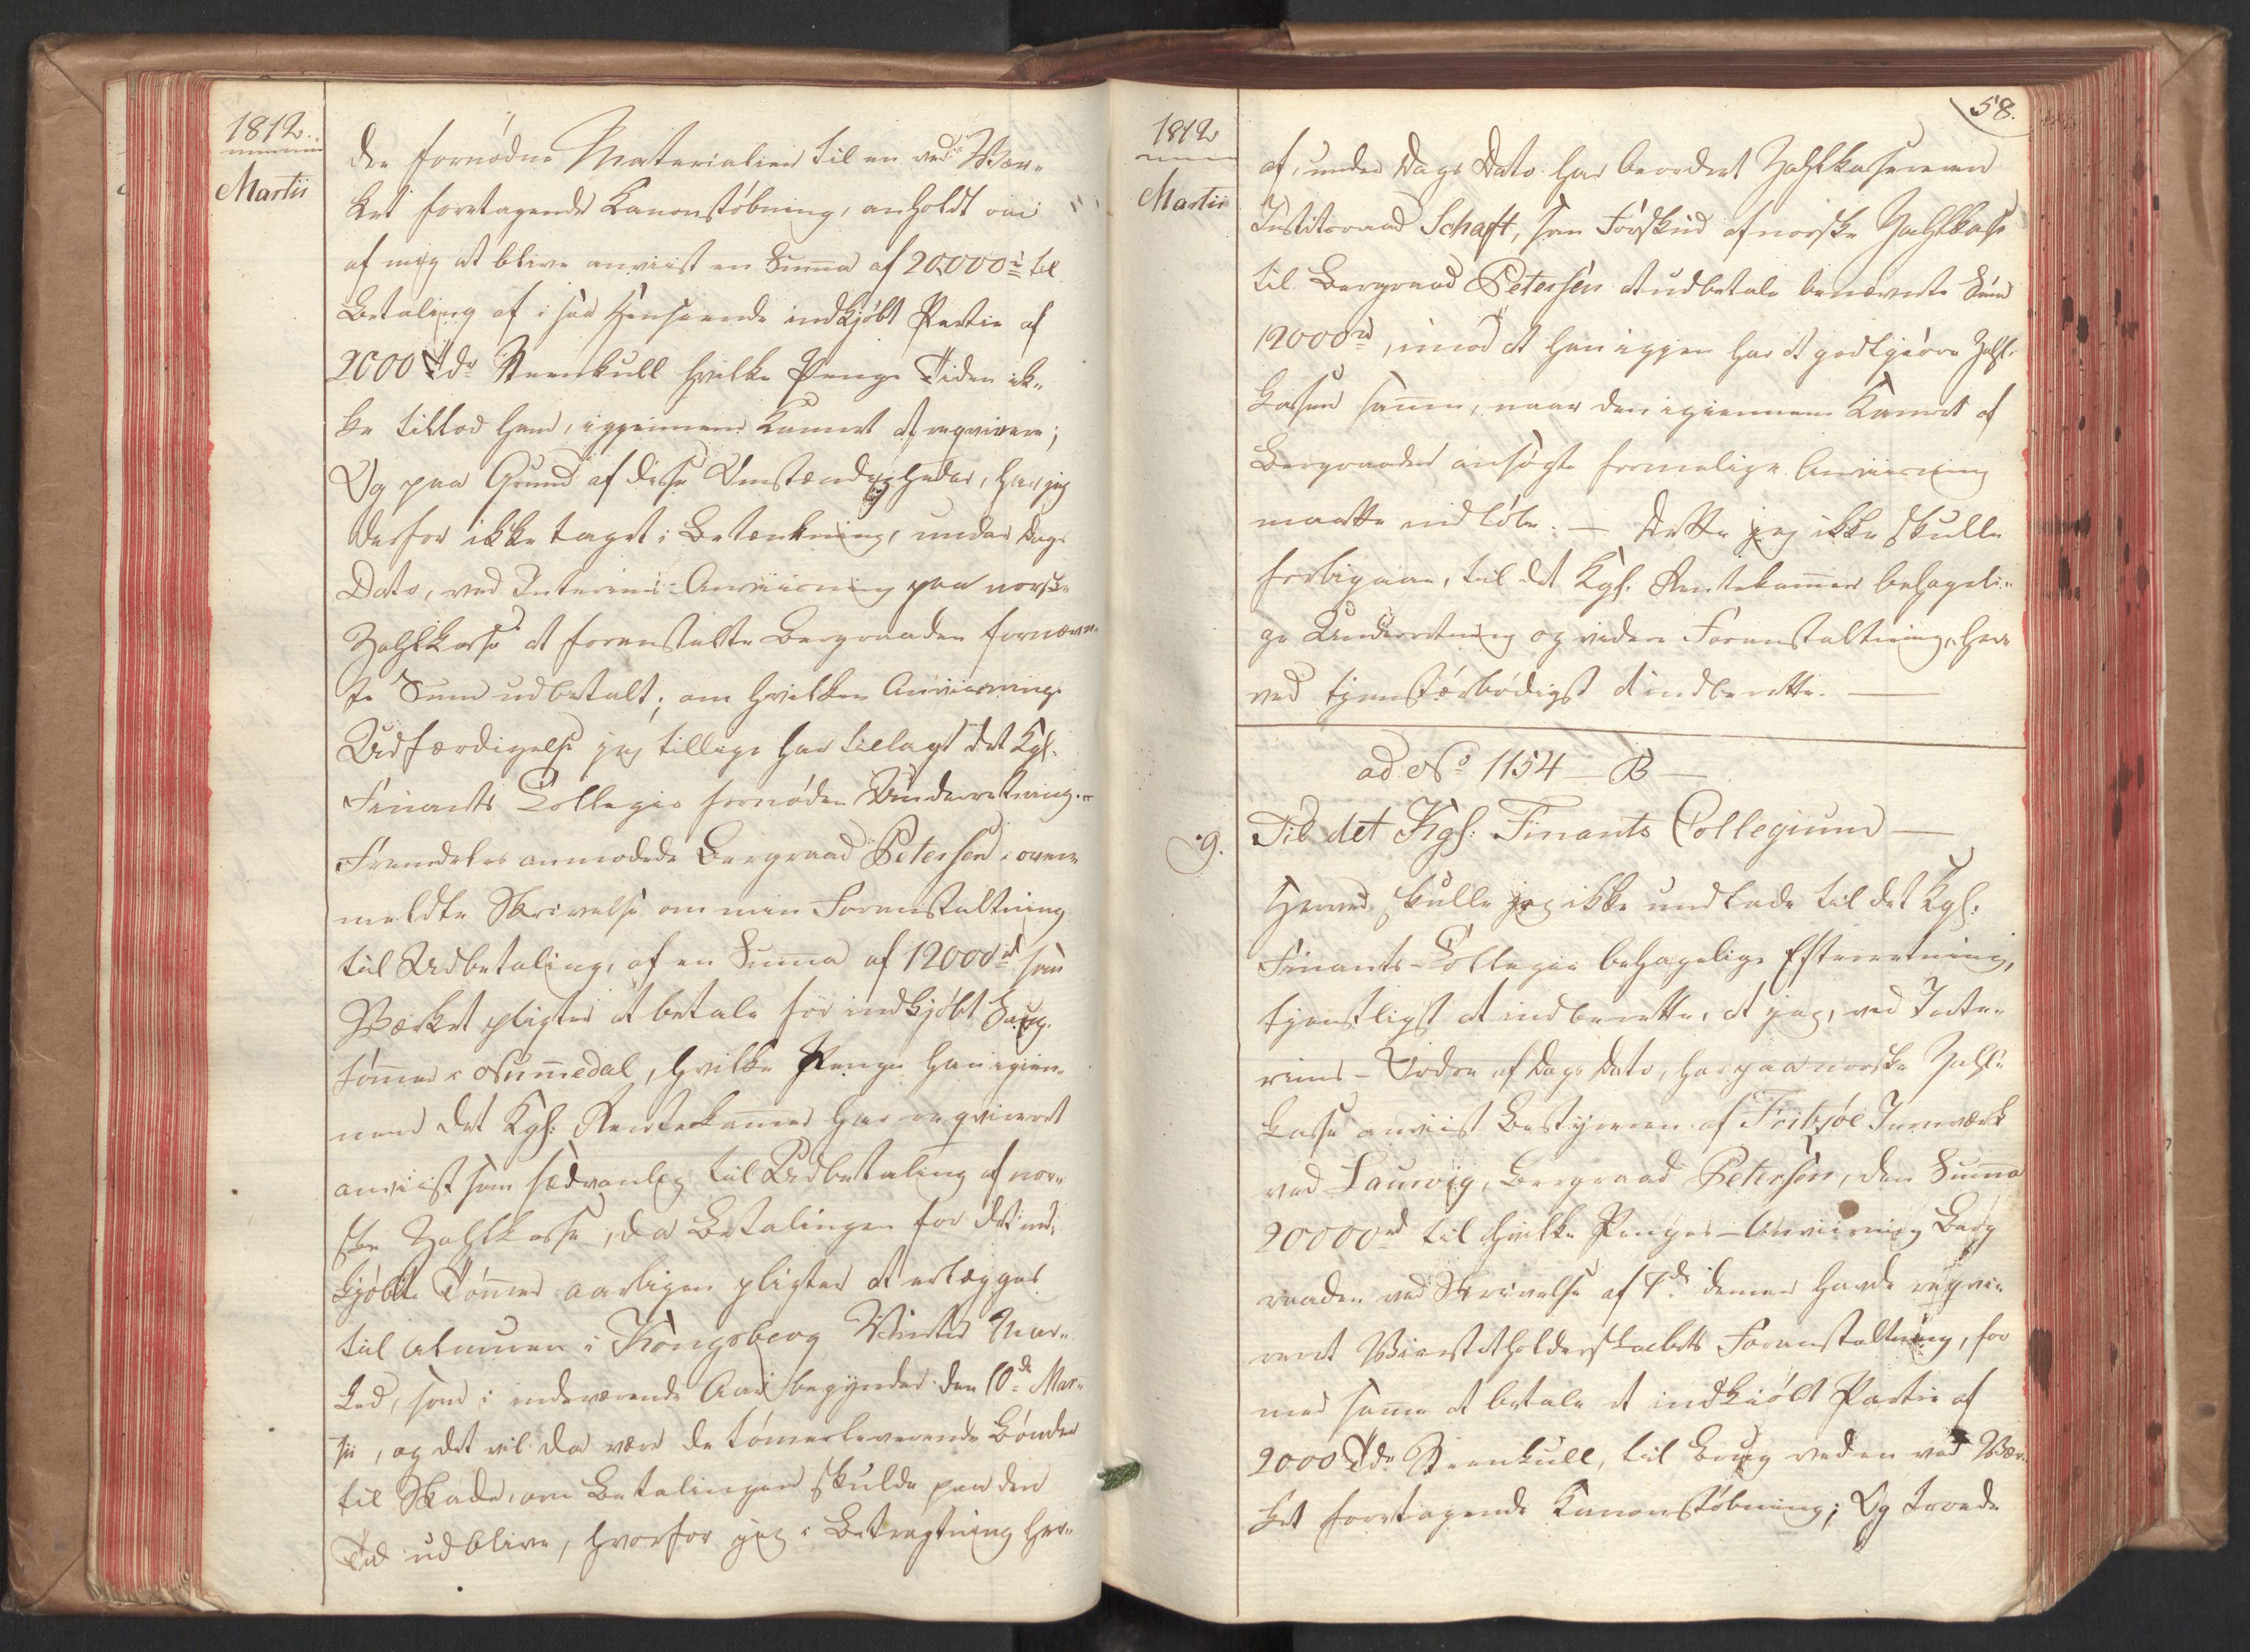 1812.
Martii
den fornødne Materialier til en ved Vær„
ket foretagende Kanonstøbning, anholdt om
af mig at blive anviist en Summa af 20,000 rd til
Betaling af i saa Henseende indkjøbt Partie af
2000 Tdr Steenkull hvilke Penge Tiden ik„
ke tillod ham, igjennem Kamret at reqvirere;
Og paa Grund af disse Omstændigheder, har jeg
derfor ikke taget i Betænkning, under Dags
Dato, ved Interims-Anviisning paa norske
Zahlkasse at foranstalte Bergraaden fornævn„
te Sum udbetalt; om hvilken Anviisnings
Udfærdigelse jeg tillige har tillagt det Kgl.
Finants Collegio fornøden Underretning.
Fremdeles anmodede Bergraad Petersen i oven
meldte Skrivelse om min Foranstaltning
til Udbetaling, af en Summa af 12000 rd som
Værket pligter at betale for indkjøbt Saug„
tømmer i Nummedal, hvilke Penge han igien„
nem det Kgl: Rentekammer har reqvireret
anviist som sædvanlig til Udbetaling af nor„
ske Zahlkasse, da Betalingen for det ind„
kjøbte Tømmer aarligen pligter at erlægges
til Almuen i Kongsberg Vinter Mar„
ked, som i indeværende Aar begynder den 10de Mar„
tii, og det vil da være de tømmerleverende Bønder
til Skade, om Betalingen skulde paa den
Tid udblive, hvorfor jeg i Betragtning her„
58.
1812
Martii
af, under Dags Dato har beordret Zahlkassereren
Justitsraad Schaft, som Forskud af norske Zahlkasse
til Bergraad Petersen at udbetale benævnte Sum
12000 rd, imod at han igjen har at godtgjøre Zahl„
Kassen samme, naar den igiennem Kamret af
Bergraaden ansøgte formelige Anviisning
maatte indløbe. — Dette jeg ikke skulle
forbigaae, til det Kgl. Rentekammer behageli„
ge Underretning og videre Foranstaltning, her
ved tjenstærbødigst at indberette. —
ad No 1154 — B —
9.
Til det Kgl: Finants Collegium —
Herved skulle jeg ikke undlade til det Kgl:
Finants-Collegie behagelige Efterretning,
tjenstligst at indberette, at jeg, ved Inte„
rims-Ordre af Dags Dato, har paa norske Zahl„
kasse anviist Bestyreren af Fritzøe Jernværk
ved Laurvig, Bergraad Petersen, den Summa
20000 rd til hvilke Penges-Anviisning Berg
raaden ved Skrivelse af 7de dennes havde reqvi„
reret Viicestatholderskabets Foranstaltning, for
med samme at betale et indkiøbt Partie af
2000 Tdr Steenkull, til Brug ved en ved Vær„
ket foretagende Kanonstøbning; Og troede